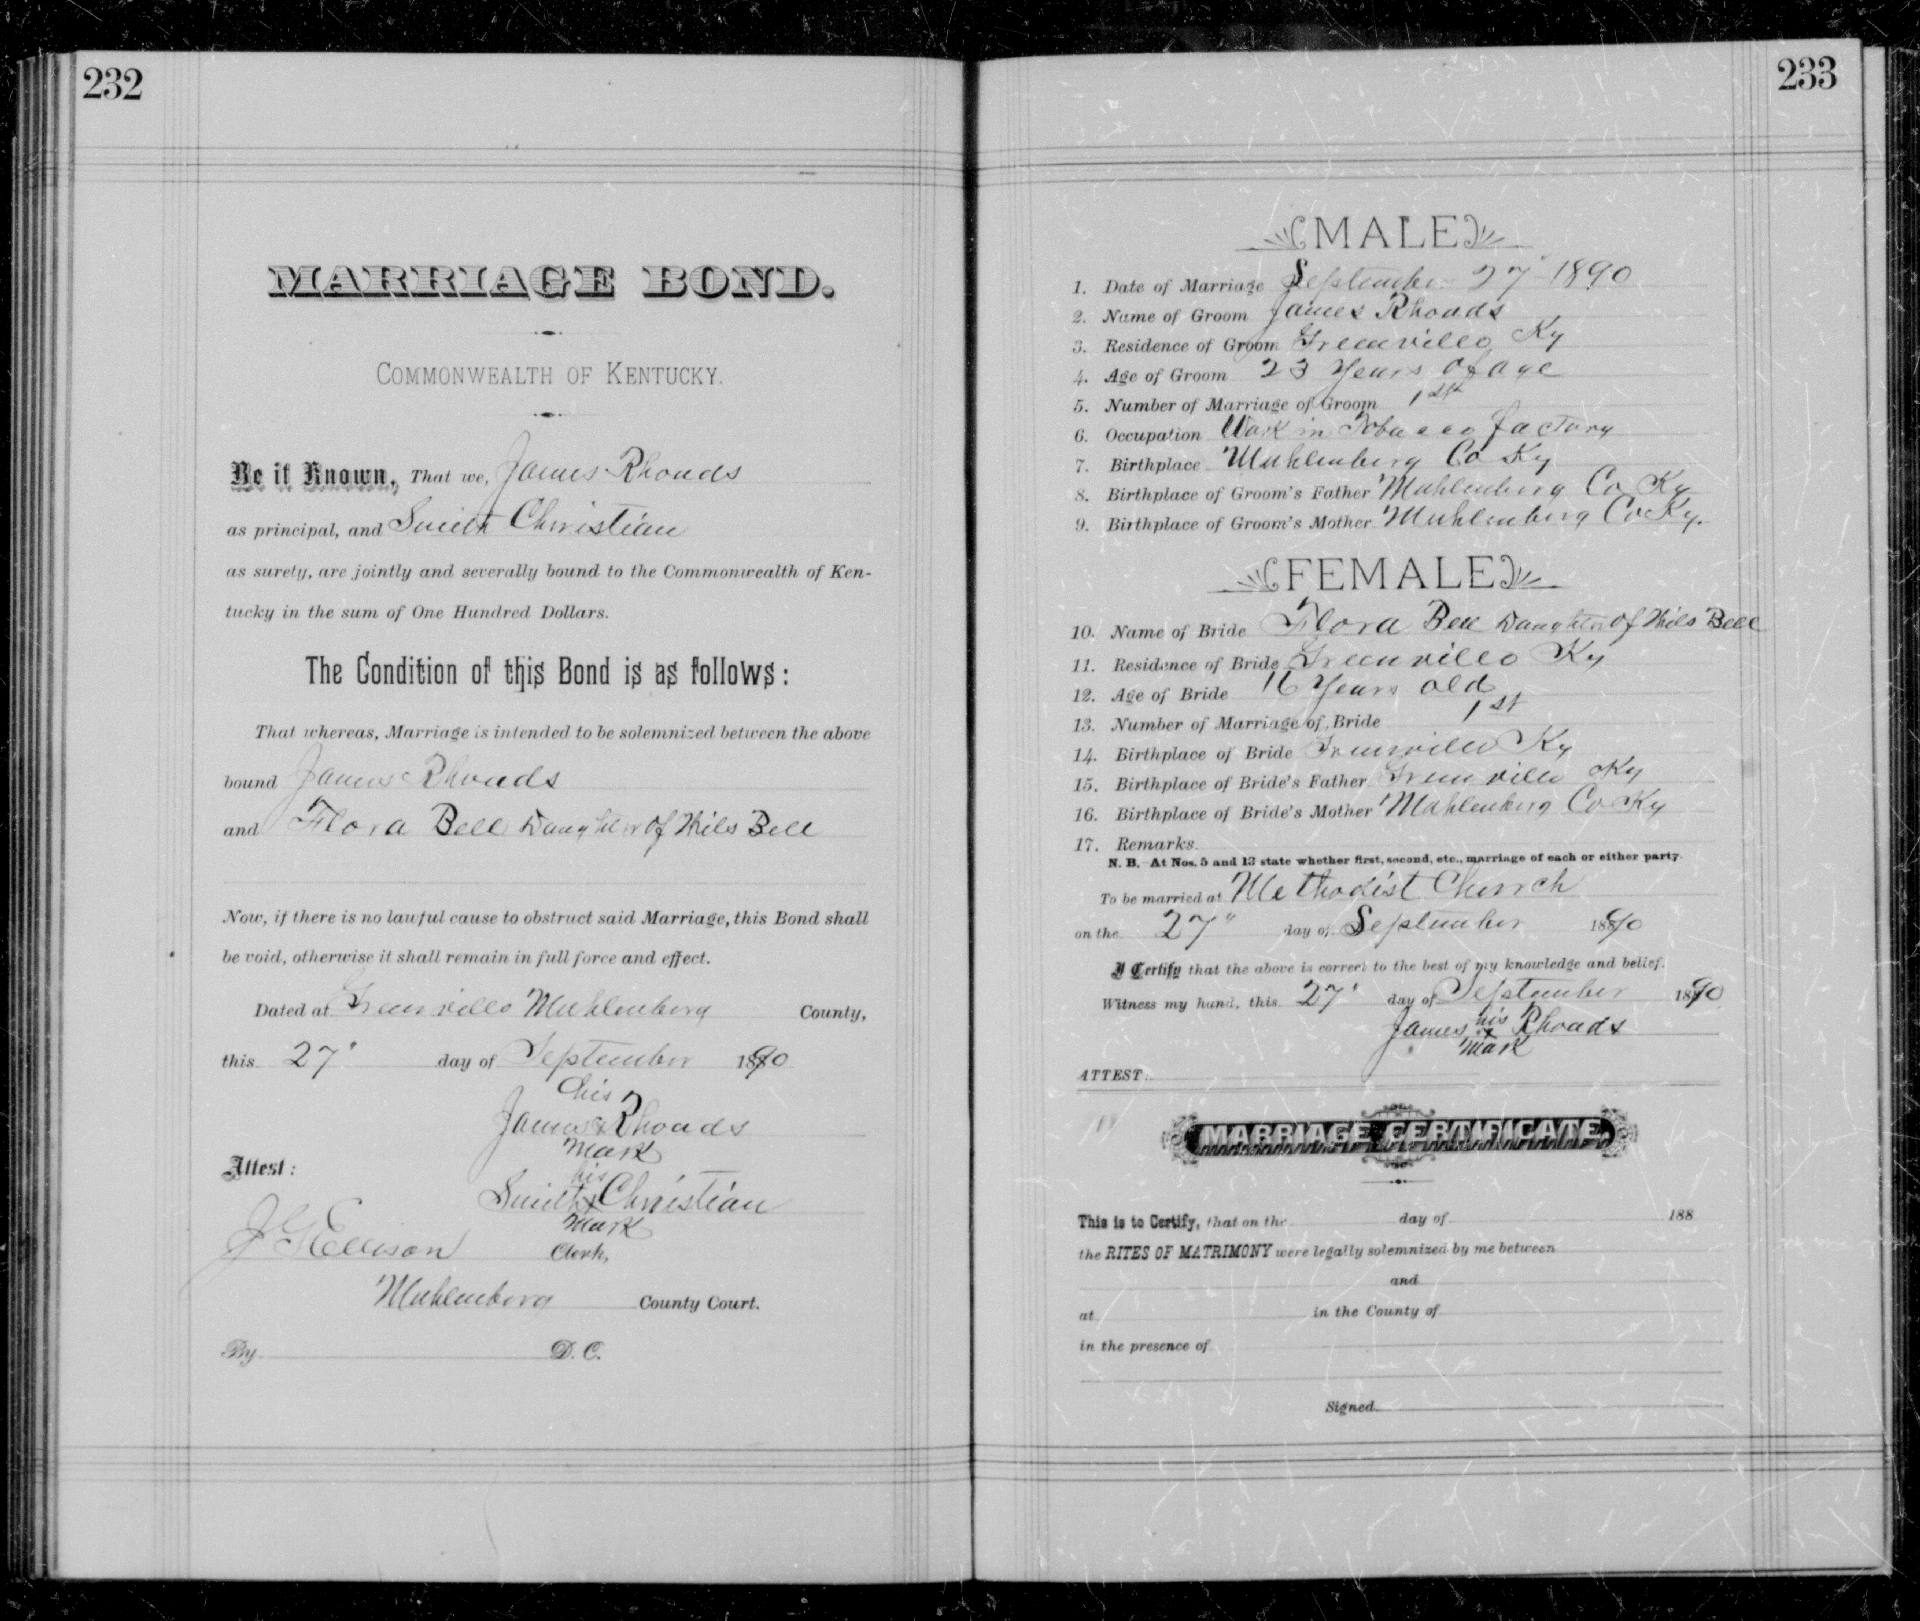 232
MARRIAGE BOND.
COMMONWEALTH OF KENTUCKY.
Be it Known, That we, James Rhoads
as principal, and Smith Christian
as surety, are jointly and severally bound to the Commonwealth of Ken-
tucky in the sum of One Hundred Dollars.
The Condition of this Bond is as follows:
That whereas, Marriage is intended to be solemnized between the above
bound James Rhoads
and Flora Bell Daughter of Bell
Now, if there is no lawful cause to obstruct said Marriage, this Bond shall
be void, otherwise it shall remain in full force and effect.
Dated at Greenville Muhlenberg County,
this 27" day of September 1890
his
James x Rhoads
mark
Attest:
his
Smith x Christian
mark
J G Ellison Clerk,
Muhlenberg County Court.
By D. C.
233
MALE
1. Date of Marriage September 27" 1890
2. Name of Groom James Rhoads
3. Residence of Groom Greenville Ky
4. Age of Groom 23 Years of age
5. Number of Marriage of Groom 1st
6. Occupation Work in Tobacco factory
7. Birthplace Muhlenberg Co Ky
8. Birthplace of Groom's Father Muhlenberg Co Ky
9. Birthplace of Groom's Mother Muhlenberg Co Ky.
FEMALE
10. Name of Bride Flora Bell Daughter of Bell
11. Residence of Bride Greenville Ky
12. Age of Bride 16 Years old
13. Number of Marriage of Bride 1st
14. Birthplace of Bride Greenville Ky
15. Birthplace of Bride's Father Greenville Ky
16. Birthplace of Bride's Mother Muhlenberg Co Ky
17. Remarks
N. B. At Nos. 5 and 13 state whether first, second, etc., marriage of each or either party.
To be married at Methodist Church
on the 27" day of September 1890
I Certify that the above is correct to the best of my knowledge and belief.
Witness my hand, this 27" day of September 1890
James his x mark Rhoads
ATTEST:
MARRIAGE CERTIFICATE.
This is to Certify, that on the day of 188
the RITES OF MATRIMONY were legally solemnized by me between
and
at in the County of
in the presence of
Signed